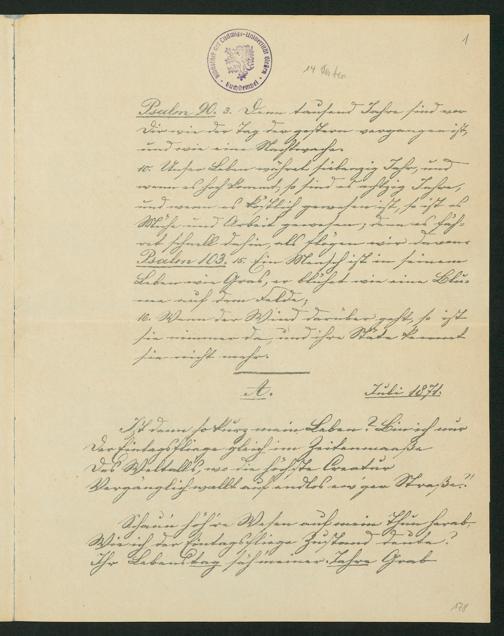 1
14 Seiten
Psalm 90. 3. Denn tausend Jahre sind vor
Dir wie der Tag der gestern vergangen ist,
und wie eine Nachtwache.
10. Unser Leben währet siebenzig Jahr, und
wenn es hoch kommt, so sind es achtzig Jahre,
und wenn es köstlich gewesen ist, so ist es
Mühe und Arbeit gewesen; denn es fäh-
ret schnell dahin, als flögen wir davon.
Psalm 103. 15. Ein Mensch ist in seinem
Leben wie Gras, er blühet wie eine Blu-
me auf dem Felde;
16. Wenn der Wind darüber geht, so ist
sie nimmer da, und ihre Stätte kennet
sie nicht mehr.
A. Juli 1871.
Ist denn so kurz mein Leben? Bin ich nur
Der Eintagsfliege gleich im Zeitenmaaße
Des Weltalls, wo die höchste Creatur
Vergänglich wallt auf endlos ew'ger Straße?
Schau'n höh're Wesen auf mein Thun herab
Wie ich der Eintagsfliege Zustand deute?
Ihr Lebenstag säh' meiner Jahre Grab
178